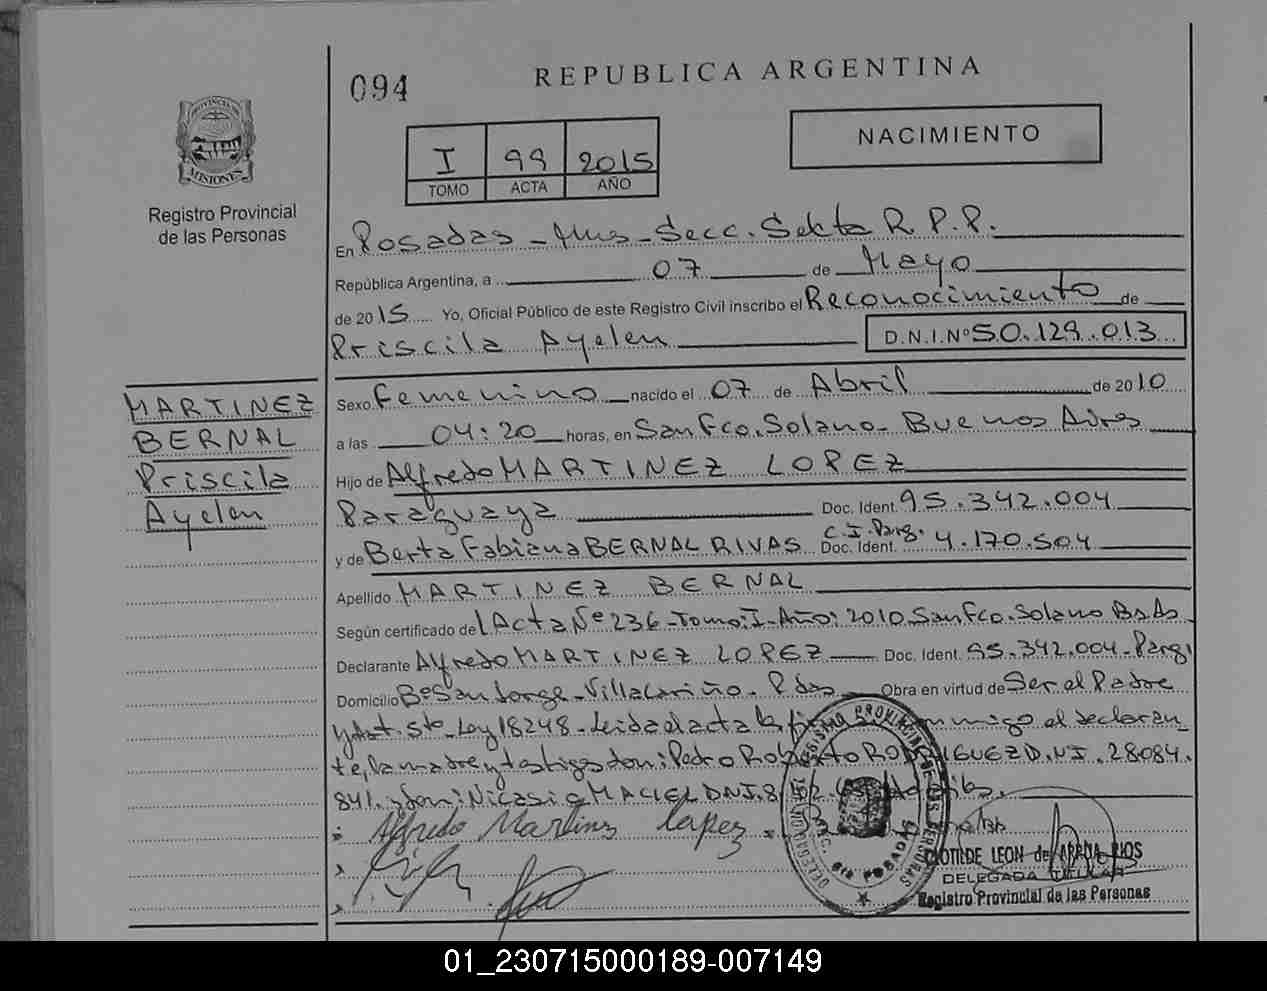 094
REPUBLICA ARGENTINA
NACIMIENTO
I 99 2015
TOMO ACTA AÑO
PROVINCIA DE
MISIONES
Registro Provincial
de las Personas
En Posadas - Mnes - Secc. Sexta R.P.P.
República Argentina, a 07 de Mayo
de 2015 Yo, Oficial Público de este Registro Civil inscribo el Reconocimiento de
Priscila Ayelen D.N.I.Nº 50.129.013
MARTINEZ
BERNAL
Priscila
Ayelen
Sexo Femenino nacido el 07 de Abril de 2010
a las 04:20 horas, en San Fco. Solano - Buenos Aires
Hijo de Alfredo MARTINEZ LOPEZ
Paraguaya Doc. Ident. 95.342.004
y de Berta Fabiana BERNAL RIVAS C.I. Parg. Doc. Ident. 4.170.504
Apellido MARTINEZ BERNAL
Según certificado de Acta Nº 236 - Tomo: I - Año: 2010 San Fco. Solano Bs As
Declarante Alfredo MARTINEZ LOPEZ Doc. Ident. 95.342.004 - Parg
Domicilio Bº San Jorge - Villa Lariño - Pdas Obra en virtud de Ser el Padre
y Art. 5to - Ley 18248 - Leida el acta la firman conmigo el declaran
te, la madre y testigos don: Pedro Roberto RODRIGUEZ D.N.I. 28084.
841. y don: Nicasio MACIEL DNI. 8
Alfredo Martinez Lopez
REGISTRO PROVINCIAL DE LAS PERSONAS
DELEGACION
SEC. 6ta POSADAS
CLOTILDE LEON de ARRUA RIOS
DELEGADA TITULAR
Registro Provincial de las Personas
01_230715000189-007149